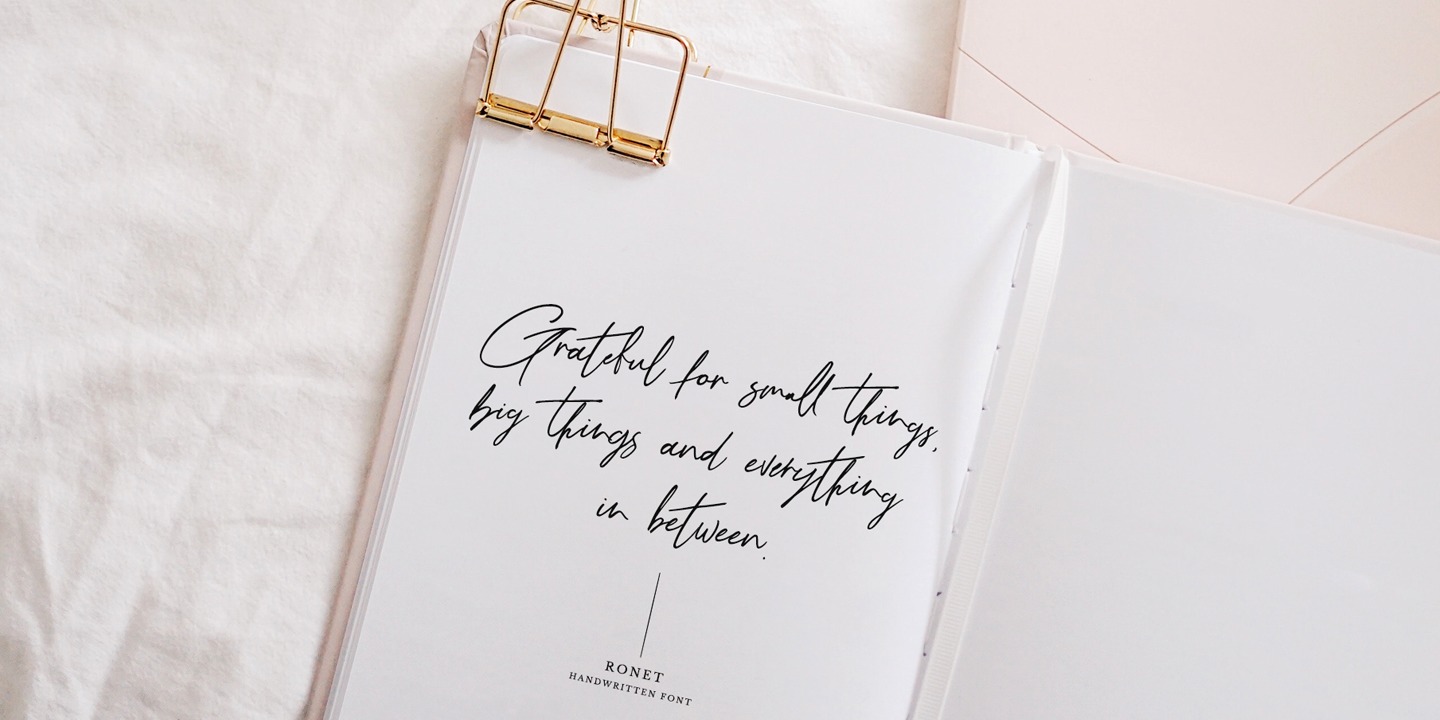 Grateful for small things,
big things and everything
in between.
RONET
HANDWRITTEN FONT